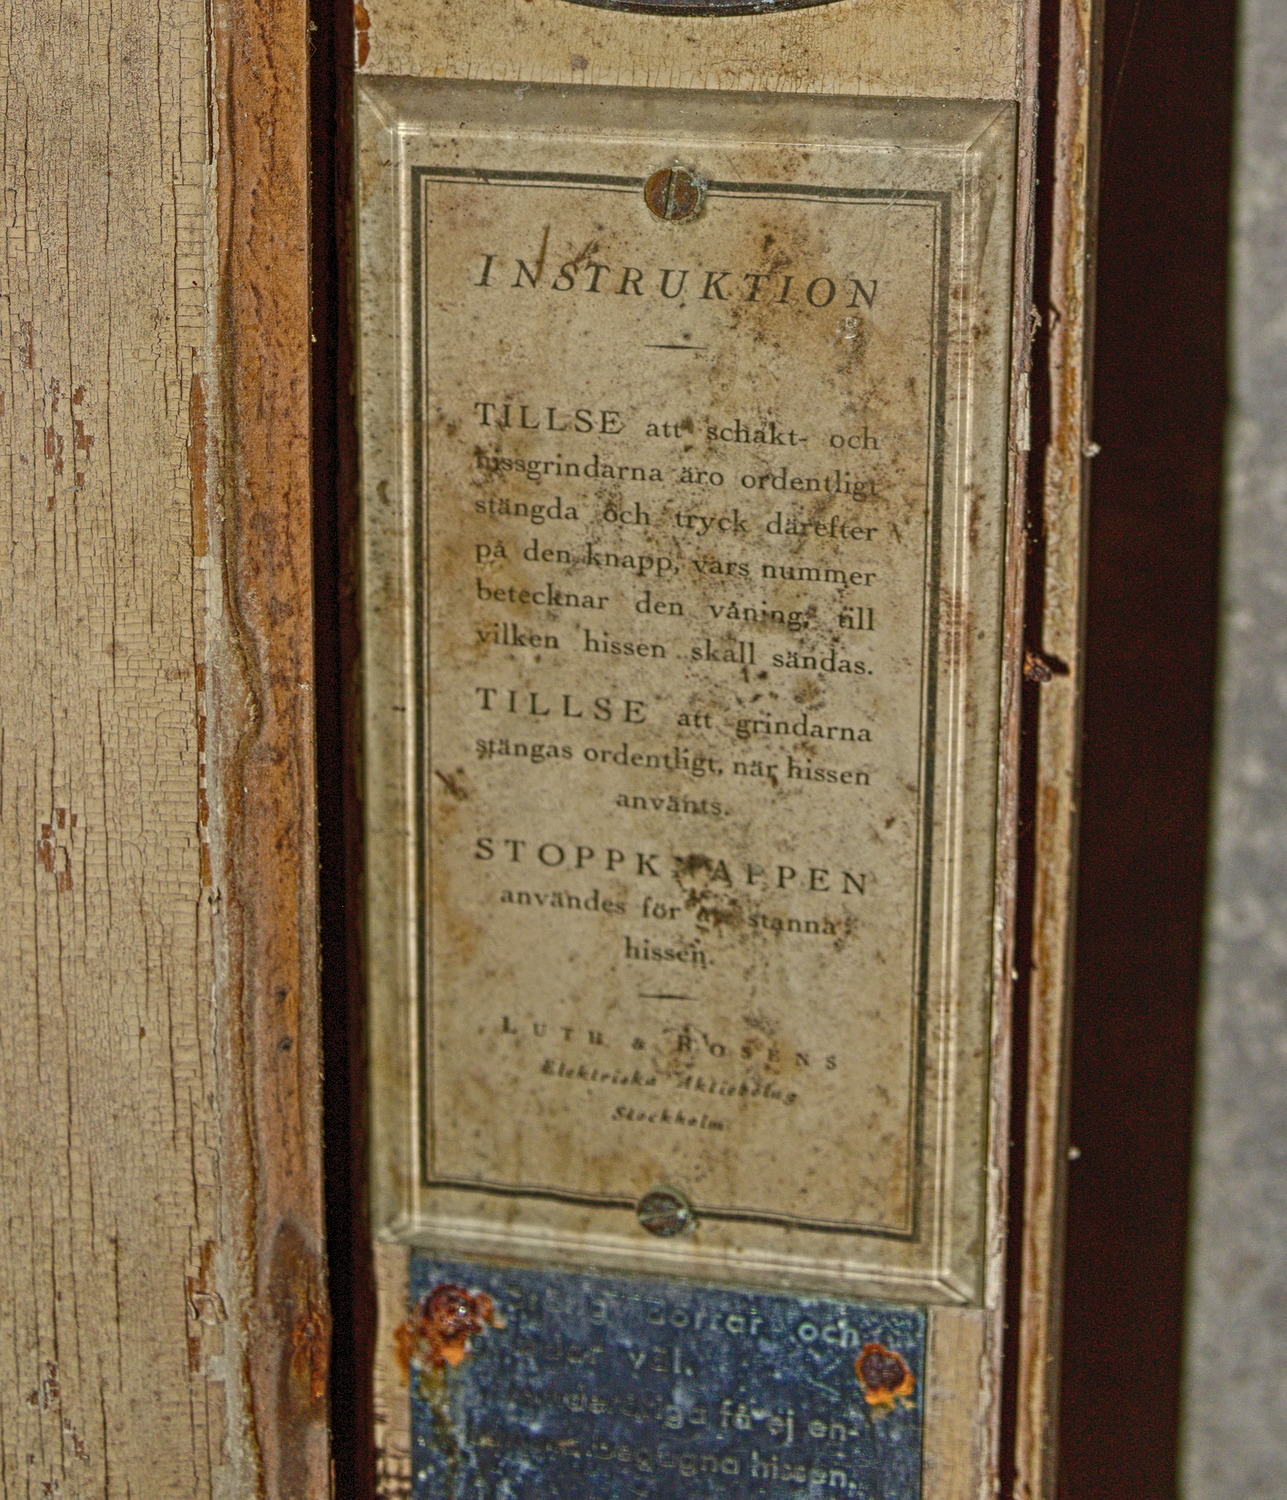 INSTRUKTION
TILLSE att schakt- och
hissgrindarna äro ordentligt
stängda och tryck därefter
på den knapp, vars nummer
betecknar den våning, till
vilken hissen skall sändas.
TILLSE att grindarna
stängas ordentligt, när hissen
använts.
STOPPKNAPPEN
användes för att stanna
hissen.
LUTH & ROSENS
Elektriska Aktiebolag
Stockholm
dörrar och
väl.
få ej en-
begagna hissen.